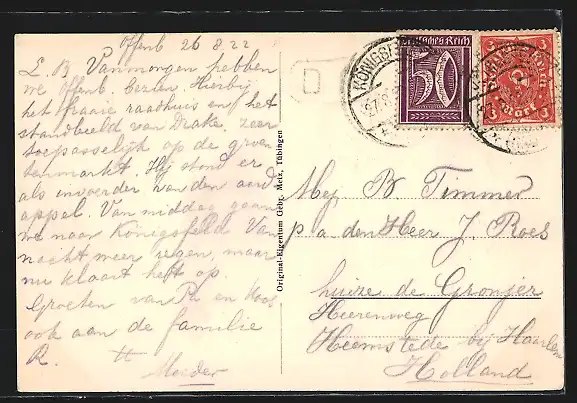 Offenb 26 8.22
L. B Vanmorgen hebben
we Offenb. bezien. Hierbij
het fraaie raadhuis en het
standbeeld van Drake. Zeer
toepasselijk op de groen
tenmarkt. Hij stond er
als invoerder van den aard
appel. Van middag gaan
we naar Königsfeld Van
nacht weer regen, maar
nu klaart heft op.
Groeten van Ph en Koos
ook aan de familie
R. tt
Moeder
Original-Eigentum Gebr. Metz, Tübingen
KÖNIGSF
Deutsches Reich
50
3 3
Mark
3 3
Mej B Timmer
p a den Heer J. Roes
huize de Gronjer
Heerenweg
Heemstede bij Haarlem
Holland